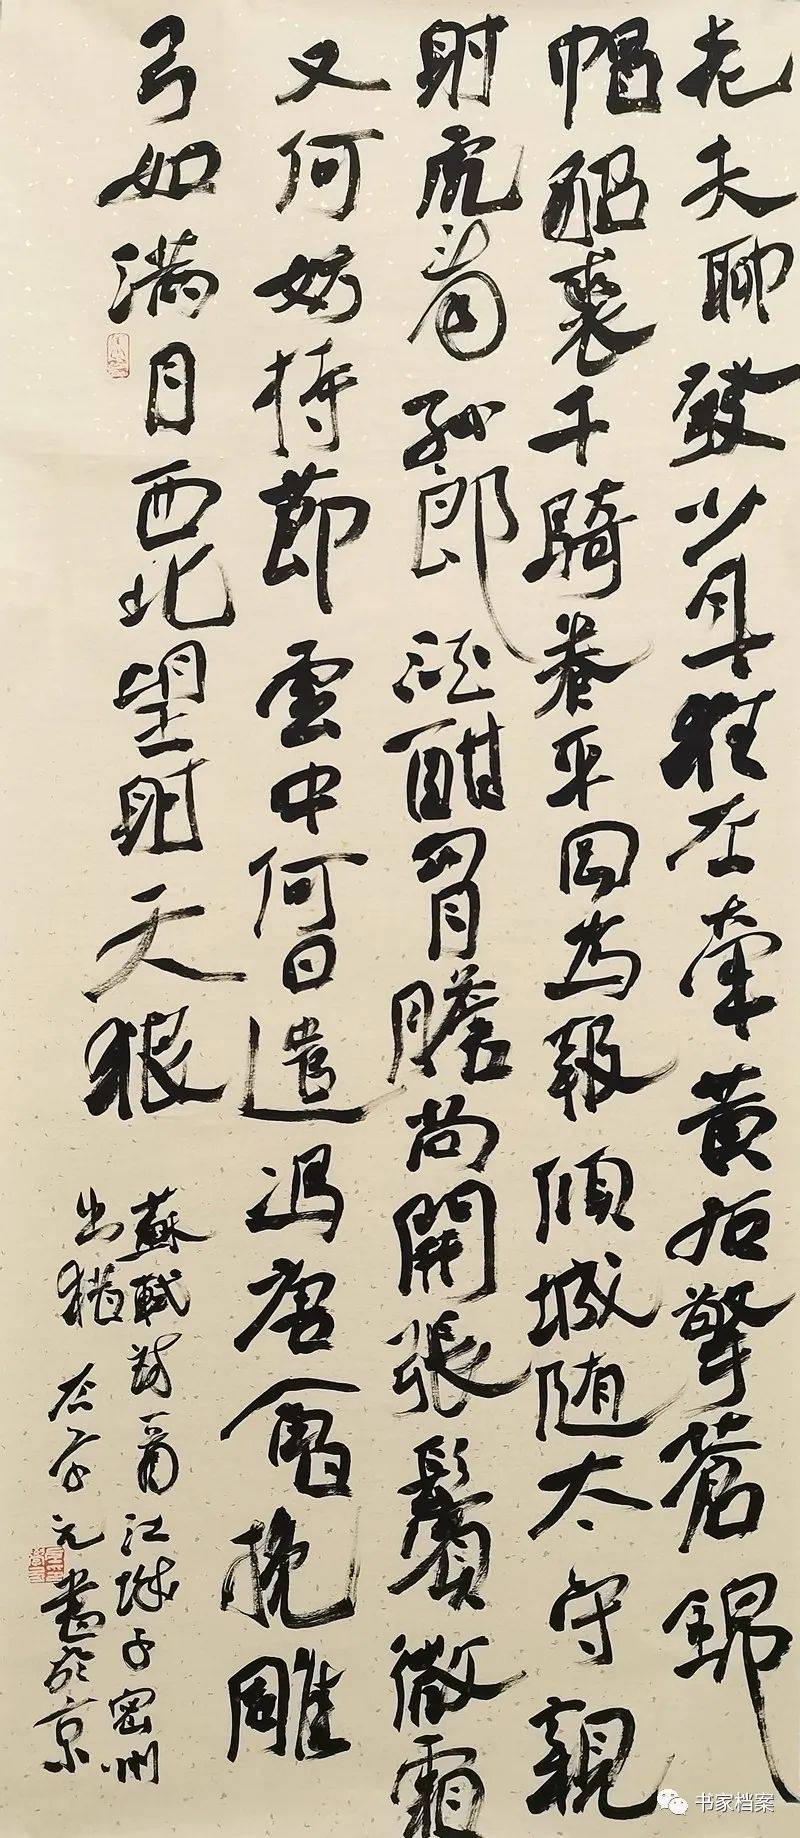 老夫聊發少年狂左牽黃右擎蒼錦
帽貂裘千騎卷平岡為報傾城随太守親
射虎看孫郎酒酣胸膽尚開張鬢微霜
又何妨持節雲中何日遣馮唐會挽雕
弓如满月西北望射天狼
蘇軾詩一首江城子密州
出猎 元書於京
书家档案